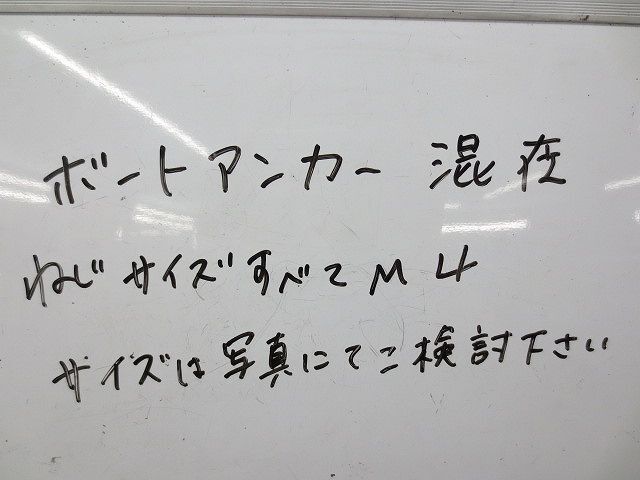 ボートアンカー 混在
ねじサイズすべてM4
サイズは写真にてご検討下さい